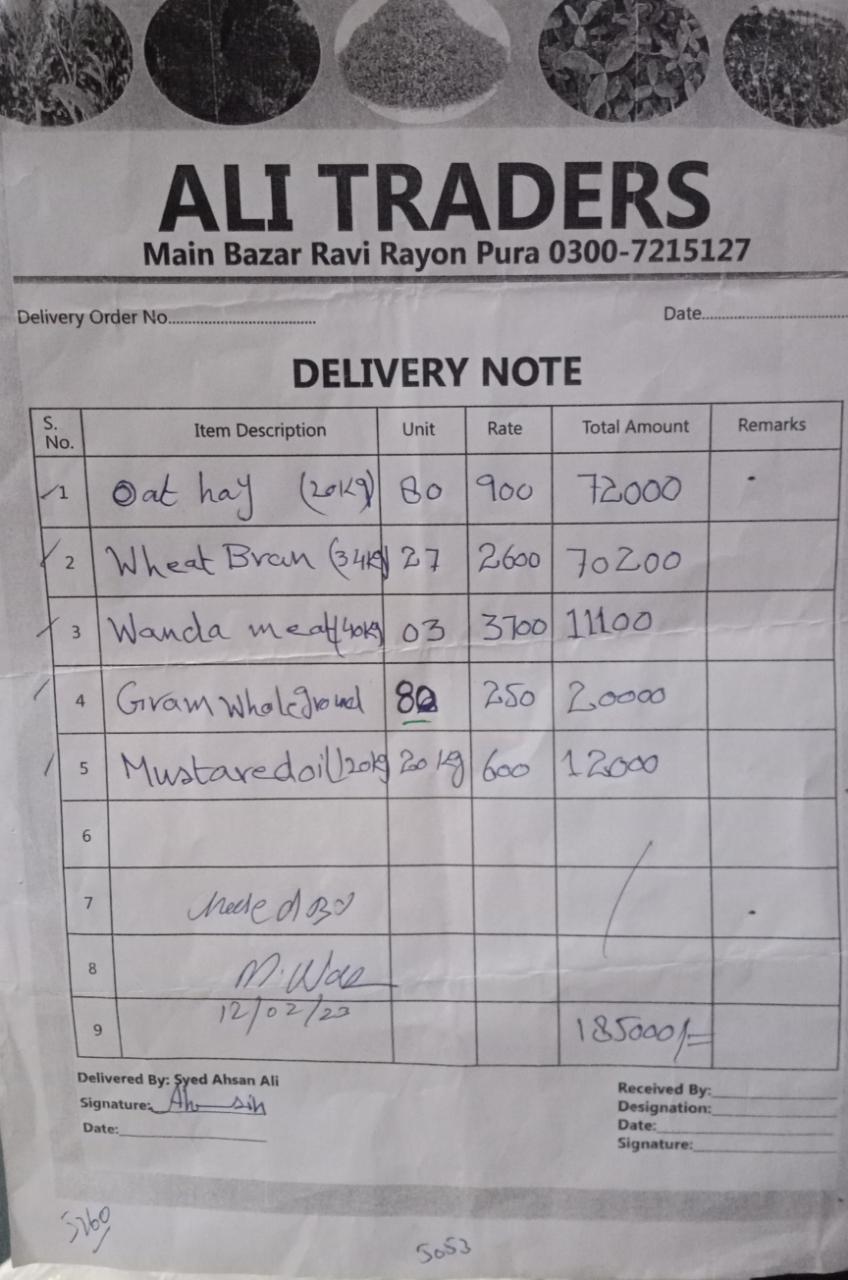 ALI TRADERS
Main Bazar Ravi Rayon Pura 0300-7215127
Delivery Order No.......................................
Date.......................................
DELIVERY NOTE
S. No. Item Description Unit Rate Total Amount Remarks
1 Oat hay (20Kg) 80 900 72000
2 Wheat Bran (34Kg) 27 2600 70200
3 Wanda meat (40Kg) 03 3700 11100
4 Gram Whole ground 80 250 20000
5 Mustaredoil (20kg 20 Kg 600 12000
6
7 Checked By
8 M. Was
9 12/02/23 185000/=
Delivered By: Syed Ahsan Ali
Signature: Ahsin
Date:
Received By:
Designation:
Date:
Signature:
5260
5053